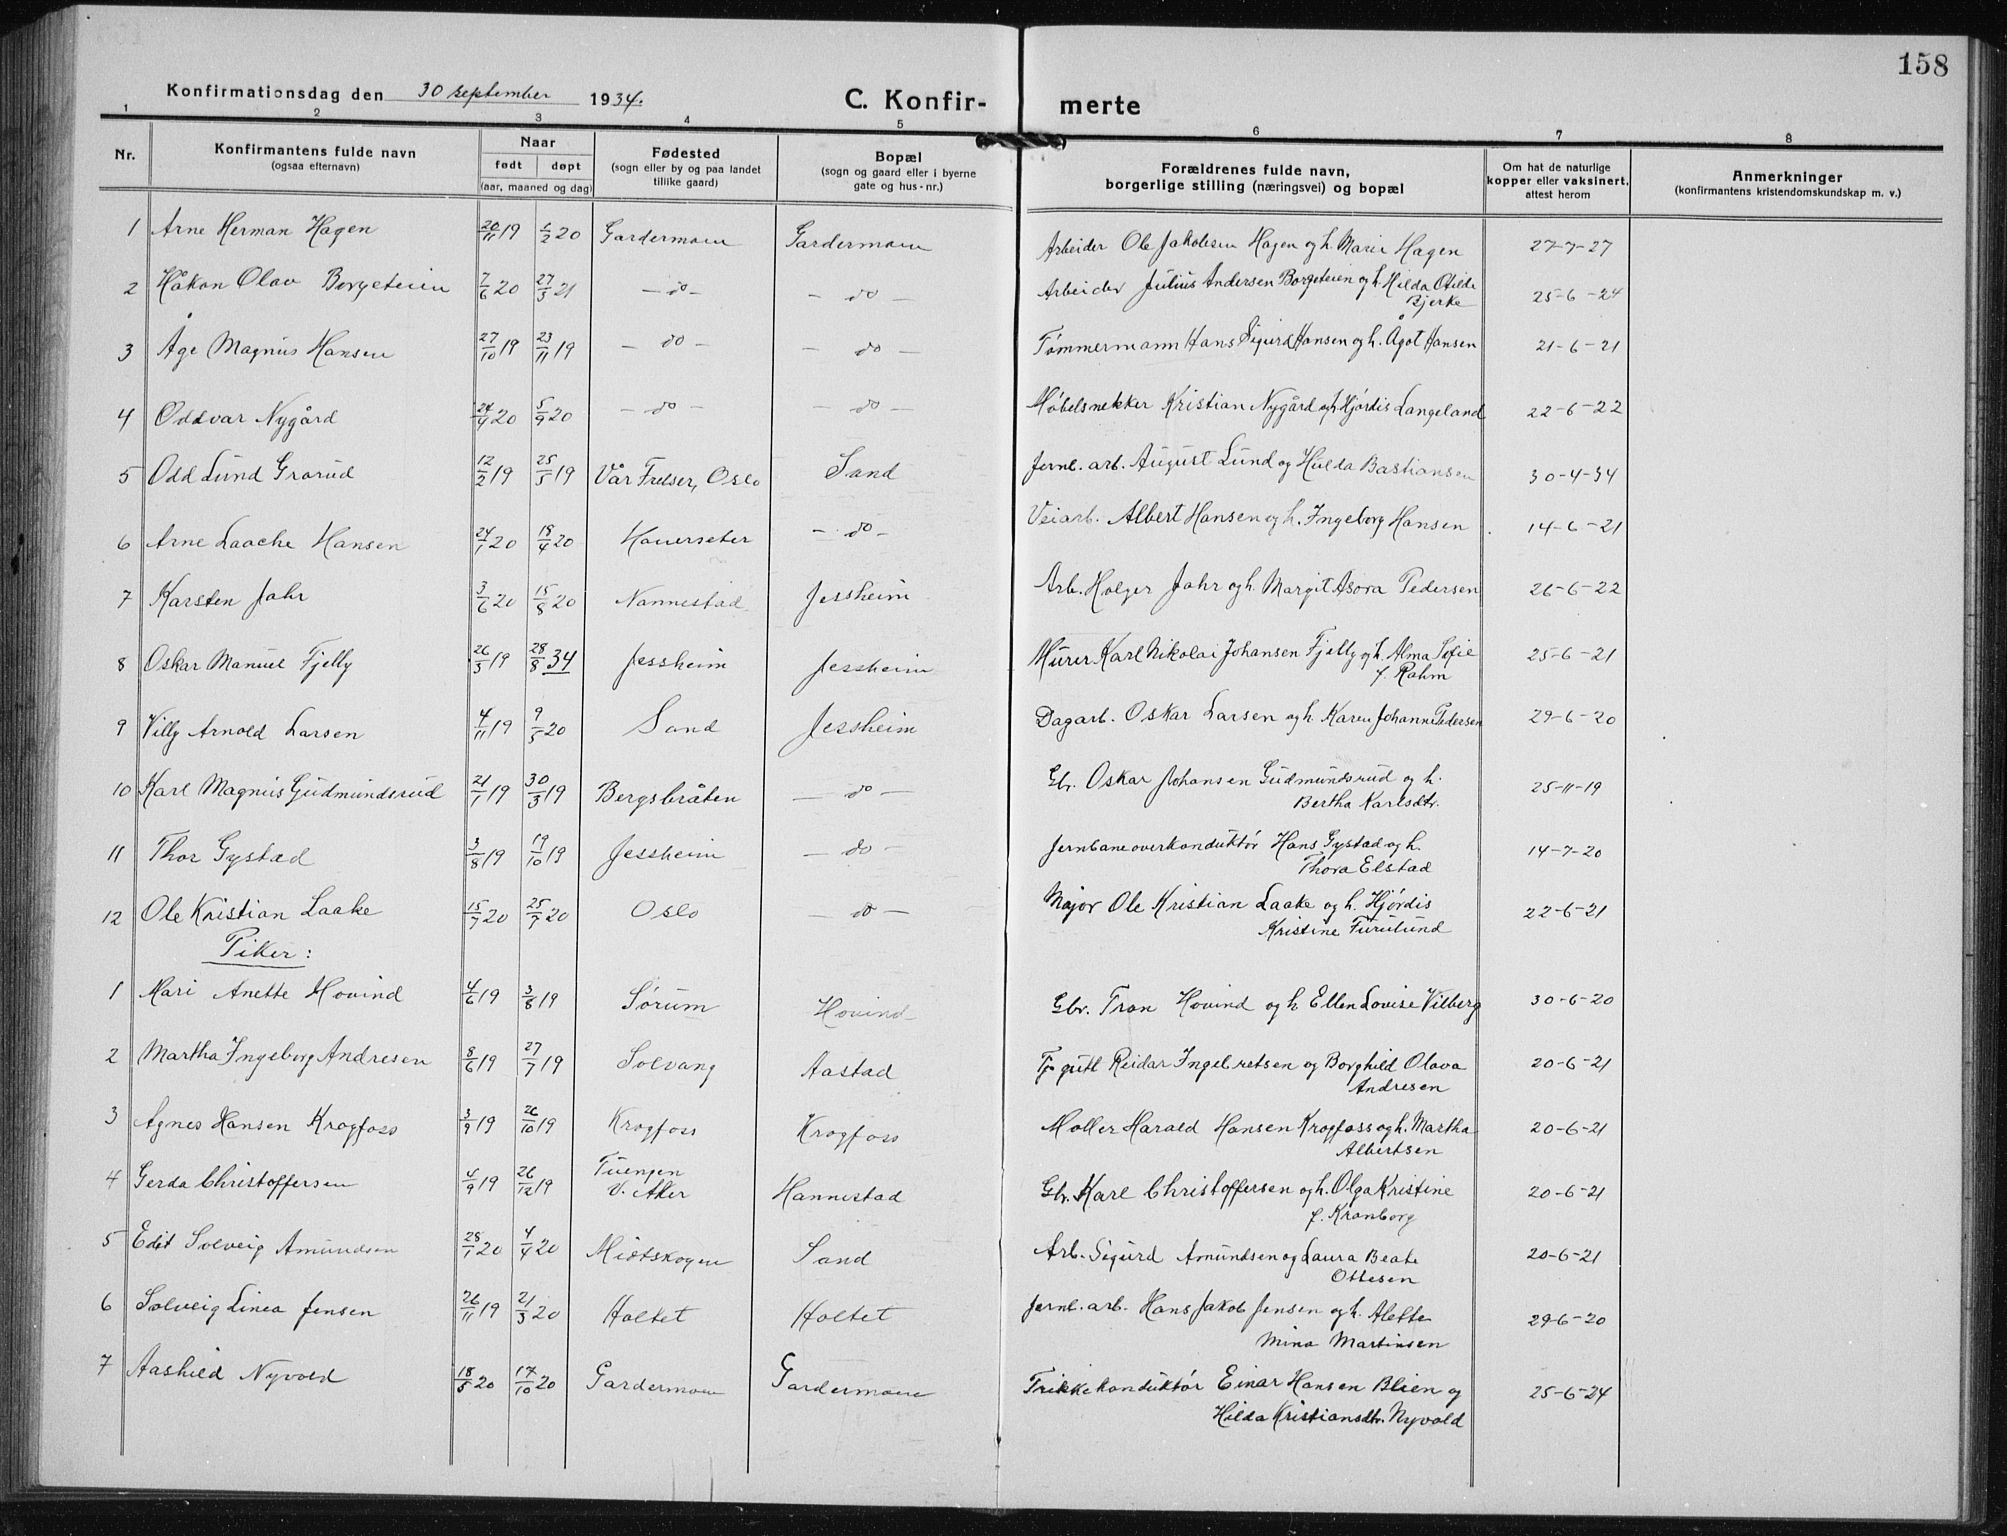 158
Konfirmationsdag den 30 september 1934.
C. Konfir- merte
1 2 3 4 5 6 7 8
Nr. Konfirmantens fulde navn (ogsaa efternavn) Naar født døpt (aar, maaned og dag) Fødested (sogn eller by og paa landet tillike gaard) Bopæl (sogn og gaard eller i byerne gate og hus-nr.) Forældrenes fulde navn, borgerlige stilling (næringsvei) og bopæl Om hat de naturlige kopper eller vaksinert, attest herom Anmerkninger (konfirmantens kristendomskundskap m. v.)
1 Arne Herman Hagen 20/11 19 1/2 20 Gardermoen Gardermoen Arbeider Ole Jakobsen Hagen og h. Marie Hagen 27-7-27
2 Håkon Olav Borgeteien 7/6 20 27/3 21 - do - - do - Arbeider Julius Andersen Borgeteien og h. Hilda Otilde
Bjerke 25-6-24
3 Åge Magnus Hansen 27/10 19 23/11 19 - do - - do - Tømmermann Hans Sigurd Hansen og h. Ågot Hansen 21-6-21
4 Oddvar Nygård 24/4 20 5/9 20 - do - - do - Møbelsnekker Kristian Nygård og h. Hjørdis Langeland 22-6-22
5 Odd Lund Grorud 12/2 19 25/5 19 Vår Frelser, Oslo Sand Jernb. arb. August Lund og Hulda Bastiansen 30-4-34
6 Arne Laache Hansen 24/1 20 18/4 20 Hauerseter - do - Veiarb. Albert Hansen og h. Ingeborg Hansen 14-6-21
7 Karsten Jahr 3/6 20 15/8 20 Nannestad Jessheim Arb. Holger Jahr og h. Margit Asora Pedersen 26-6-22
8 Oskar Manuel Fjelly 26/3 19 28/8 34 Jessheim Jessheim Murer Karl Nikolai Johansen Fjelly og h. Alma Sofie
f. Rahm 25-6-21
9 Villy Arnold Larsen 4/11 19 9/5 20 Sand Jessheim Dagarb. Oskar Larsen og h. Karen Johanne Pedersen 29-6-20
10 Karl Magnus Gudmundsrud 21/1 19 30/3 19 Bergsbråten - do - Gbr. Oskar Johansen Gudmundsrud og h.
Bertha Karlsdtr. 25-11-19
11 Thor Gystad 3/8 19 19/10 19 Jessheim - do - Jernbaneoverkonduktør Hans Gystad og h.
Thora Elstad 14-7-20
12 Ole Kristian Laake 15/7 20 25/7 20 Oslo do - Major Ole Kristian Laake og h. Hjørdis
Kristine Furulund 22-6-21
Piker:
1 Mari Anette Hovind 4/6 19 3/8 19 Sørum Hovind Gbr. Tron Hovind og h Ellen Lovise Vilberg 30-6-20
2 Martha Ingeborg Andresen 8/6 19 27/7 19 Solvang Aastad Tj. gutt Reidar Ingebretsen og Borghild Olava
Andresen 20-6-21
3 Agnes Hansen Krogfoss 3/9 19 26/10 19 Krogfoss Krogfoss Møller Harald Hansen Krogfoss og h. Martha
Albertsen 20-6-21
4 Gerda Christoffersen 4/9 19 26/12 19 Tuengen
V. Aker Hannestad Gbr. Karl Christoffersen og h. Olga Kristine
f. Kronborg 20-6-21
5 Edit Solveig Amundsen 28/1 20 4/4 20 Mistskogen Sand Arb. Sigurd Amundsen og Laura Beate
Ottesen 20-6-21
6 Solveig Linea Jensen 26/11 19 21/3 20 Holtet Holtet Jernb. arb. Hans Jakob Jensen og h. Alette
Mina Martinsen 29-6-20
7 Aashild Nyvold 18/5 20 17/10 20 Gardermoen Gardermoen Trikkekonduktør Einar Hansen Blien og
Hilda Kristiansdtr. Nyvold 25-6-24